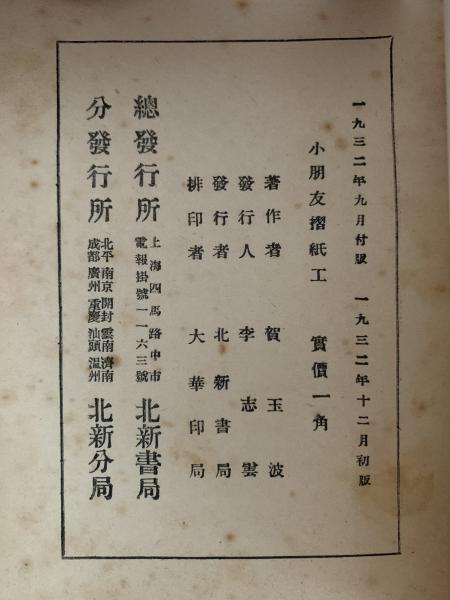 一九三二年九月付版 一九三二年十二月初版
小朋友摺紙工 實價一角
著作者 賀玉波
發行人 李志雲
發行者 北新書局
排印者 大華印局
總發行所 上海四馬路中市 電報掛號一一六三號 北新書局
分發行所 北平 南京 開封 雲南 濟南 成都 廣州 重慶 汕頭 溫州 北新分局